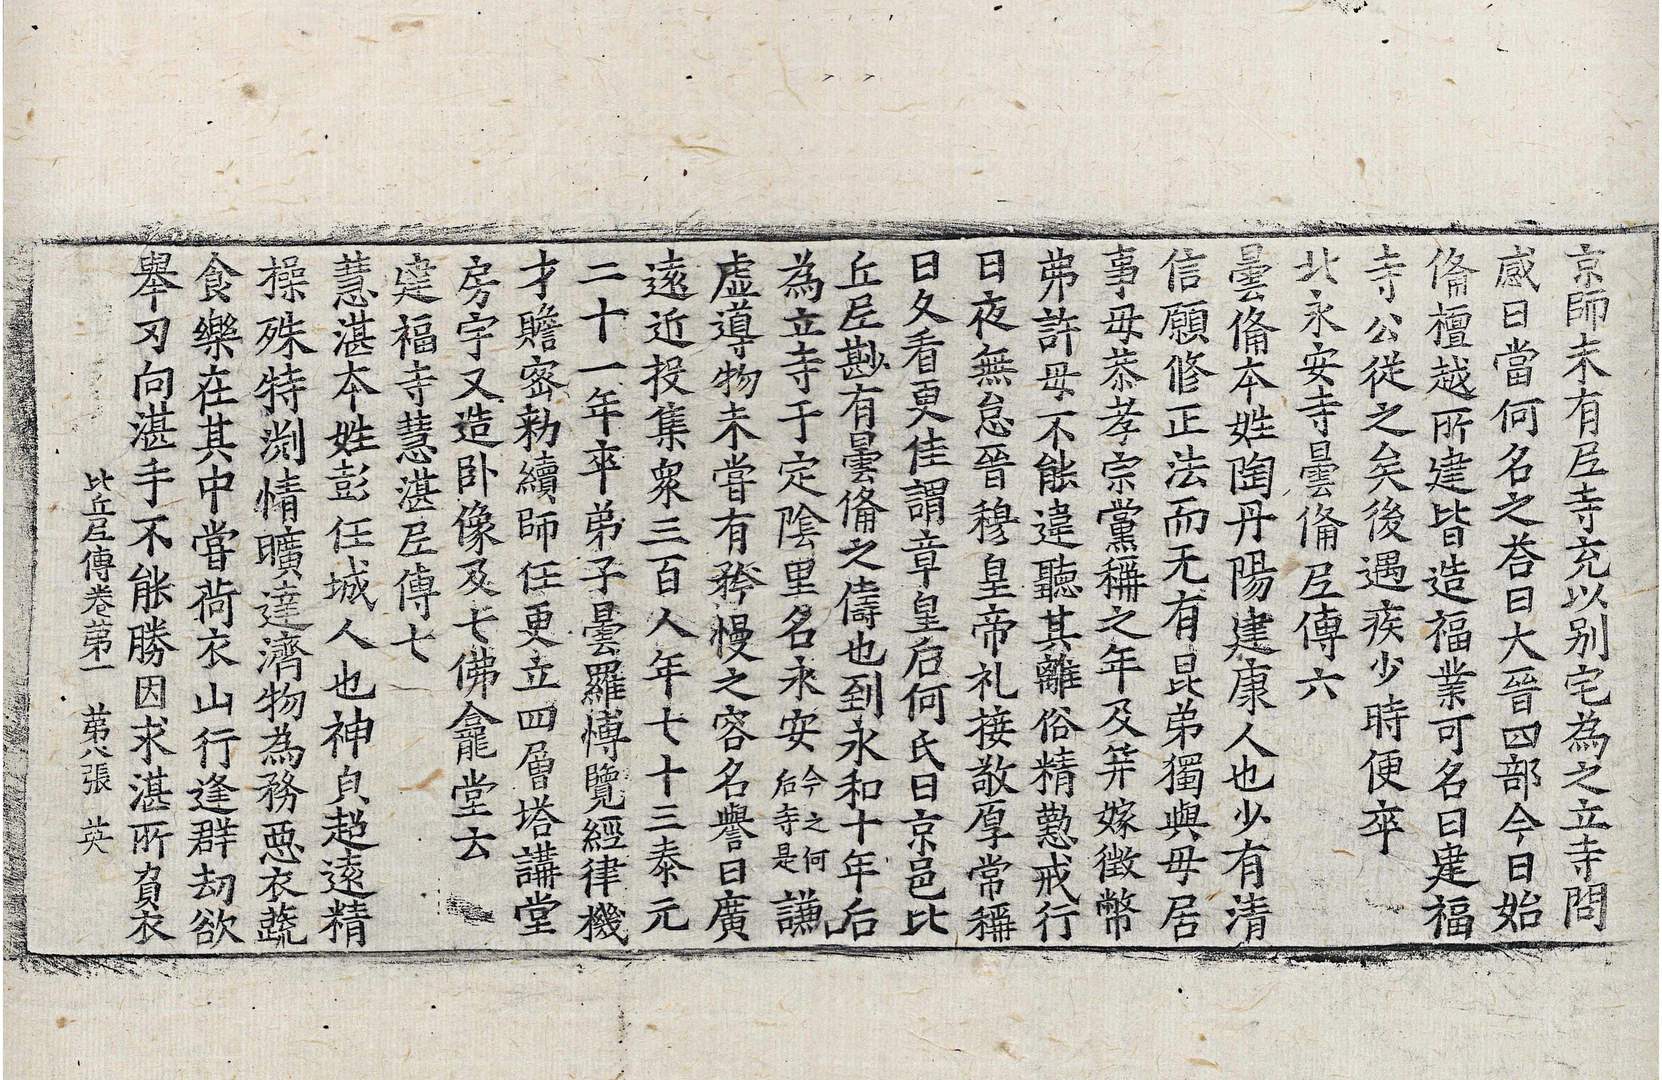 京師未有尼寺充以别宅為之立寺問
感曰當何名之荅曰大晉四部今日始
俻檀越所建皆造福業可名曰建福
寺公從之矣後遇疾少時便卒
北永安寺曇俻尼傳六
曇俻本姓陶丹陽建康人也少有清
信願修正法而无有昆弟獨與母居
事母恭孝宗黨稱之年及笄嫁徵幣
弗許母不能違聽其離俗精懃戒行
日夜無怠晉穆皇帝礼接敬厚常稱
曰久看更佳謂章皇后何氏曰京邑比
丘尼尠有曇俻之儔也到永和十年后
為立寺于定陰里名永安今之何后寺是謙
虚導物未嘗有矜慢之容名譽日廣
遠近投集衆三百人年七十三泰元
二十一年卒弟子曇羅博覽經律機
才贍密勑續師任更立四層塔講堂
房宇又造卧像及七佛龕堂云
建福寺慧湛尼傳七
慧湛本姓彭任城人也神貞超遠精
操殊特渕情曠達濟物為務惡衣蔬
食樂在其中嘗荷衣山行逢群劫欲
舉刃向湛手不能勝因求湛所負衣
比丘尼傳卷第一 第八張 英